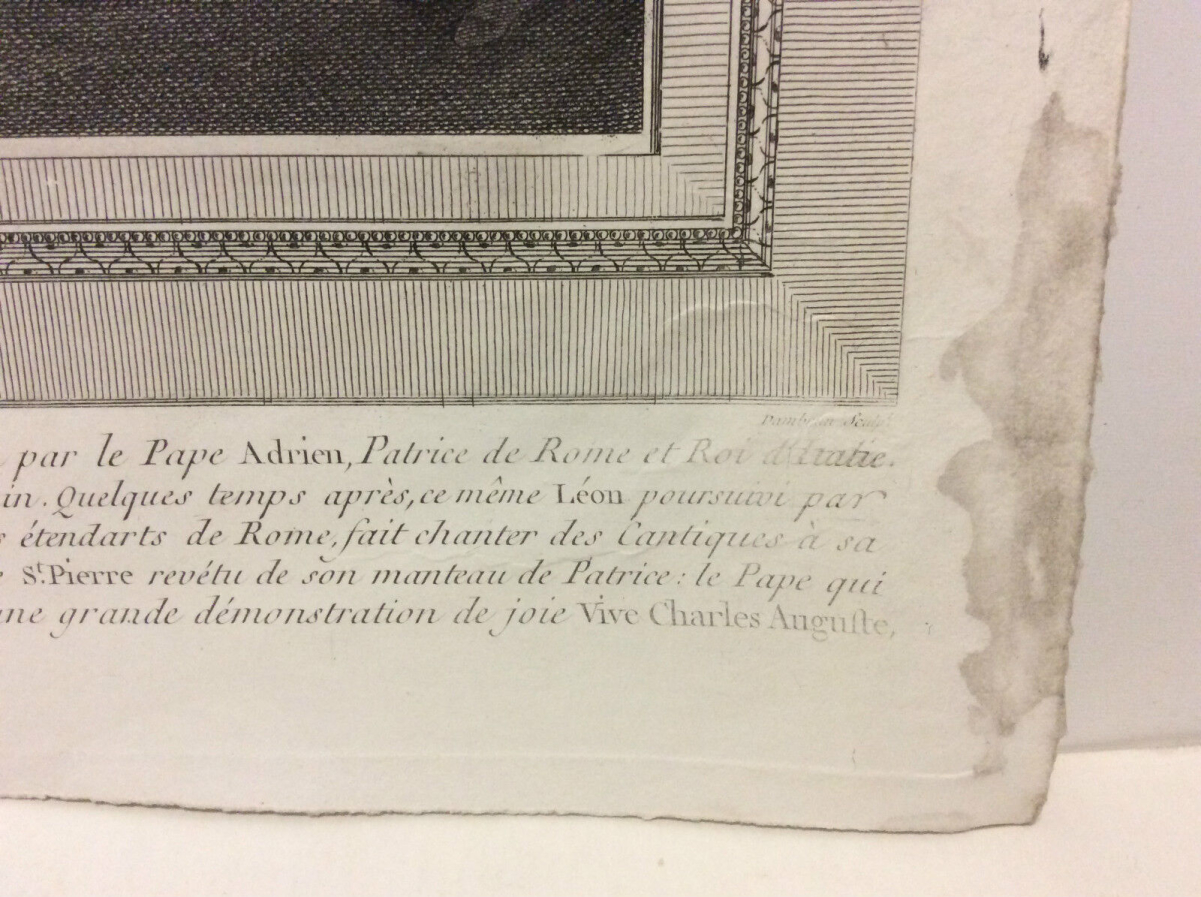 Dambrun Sculp.
par le Pape Adrien, Patrice de Rome et Roi d'Italie.
in. Quelques temps après, ce même Léon poursuivi par
s étendarts de Rome, fait chanter des Cantiques à sa
e St. Pierre revétu de son manteau de Patrice : le Pape qui
une grande démonstration de joie Vive Charles Auguste,